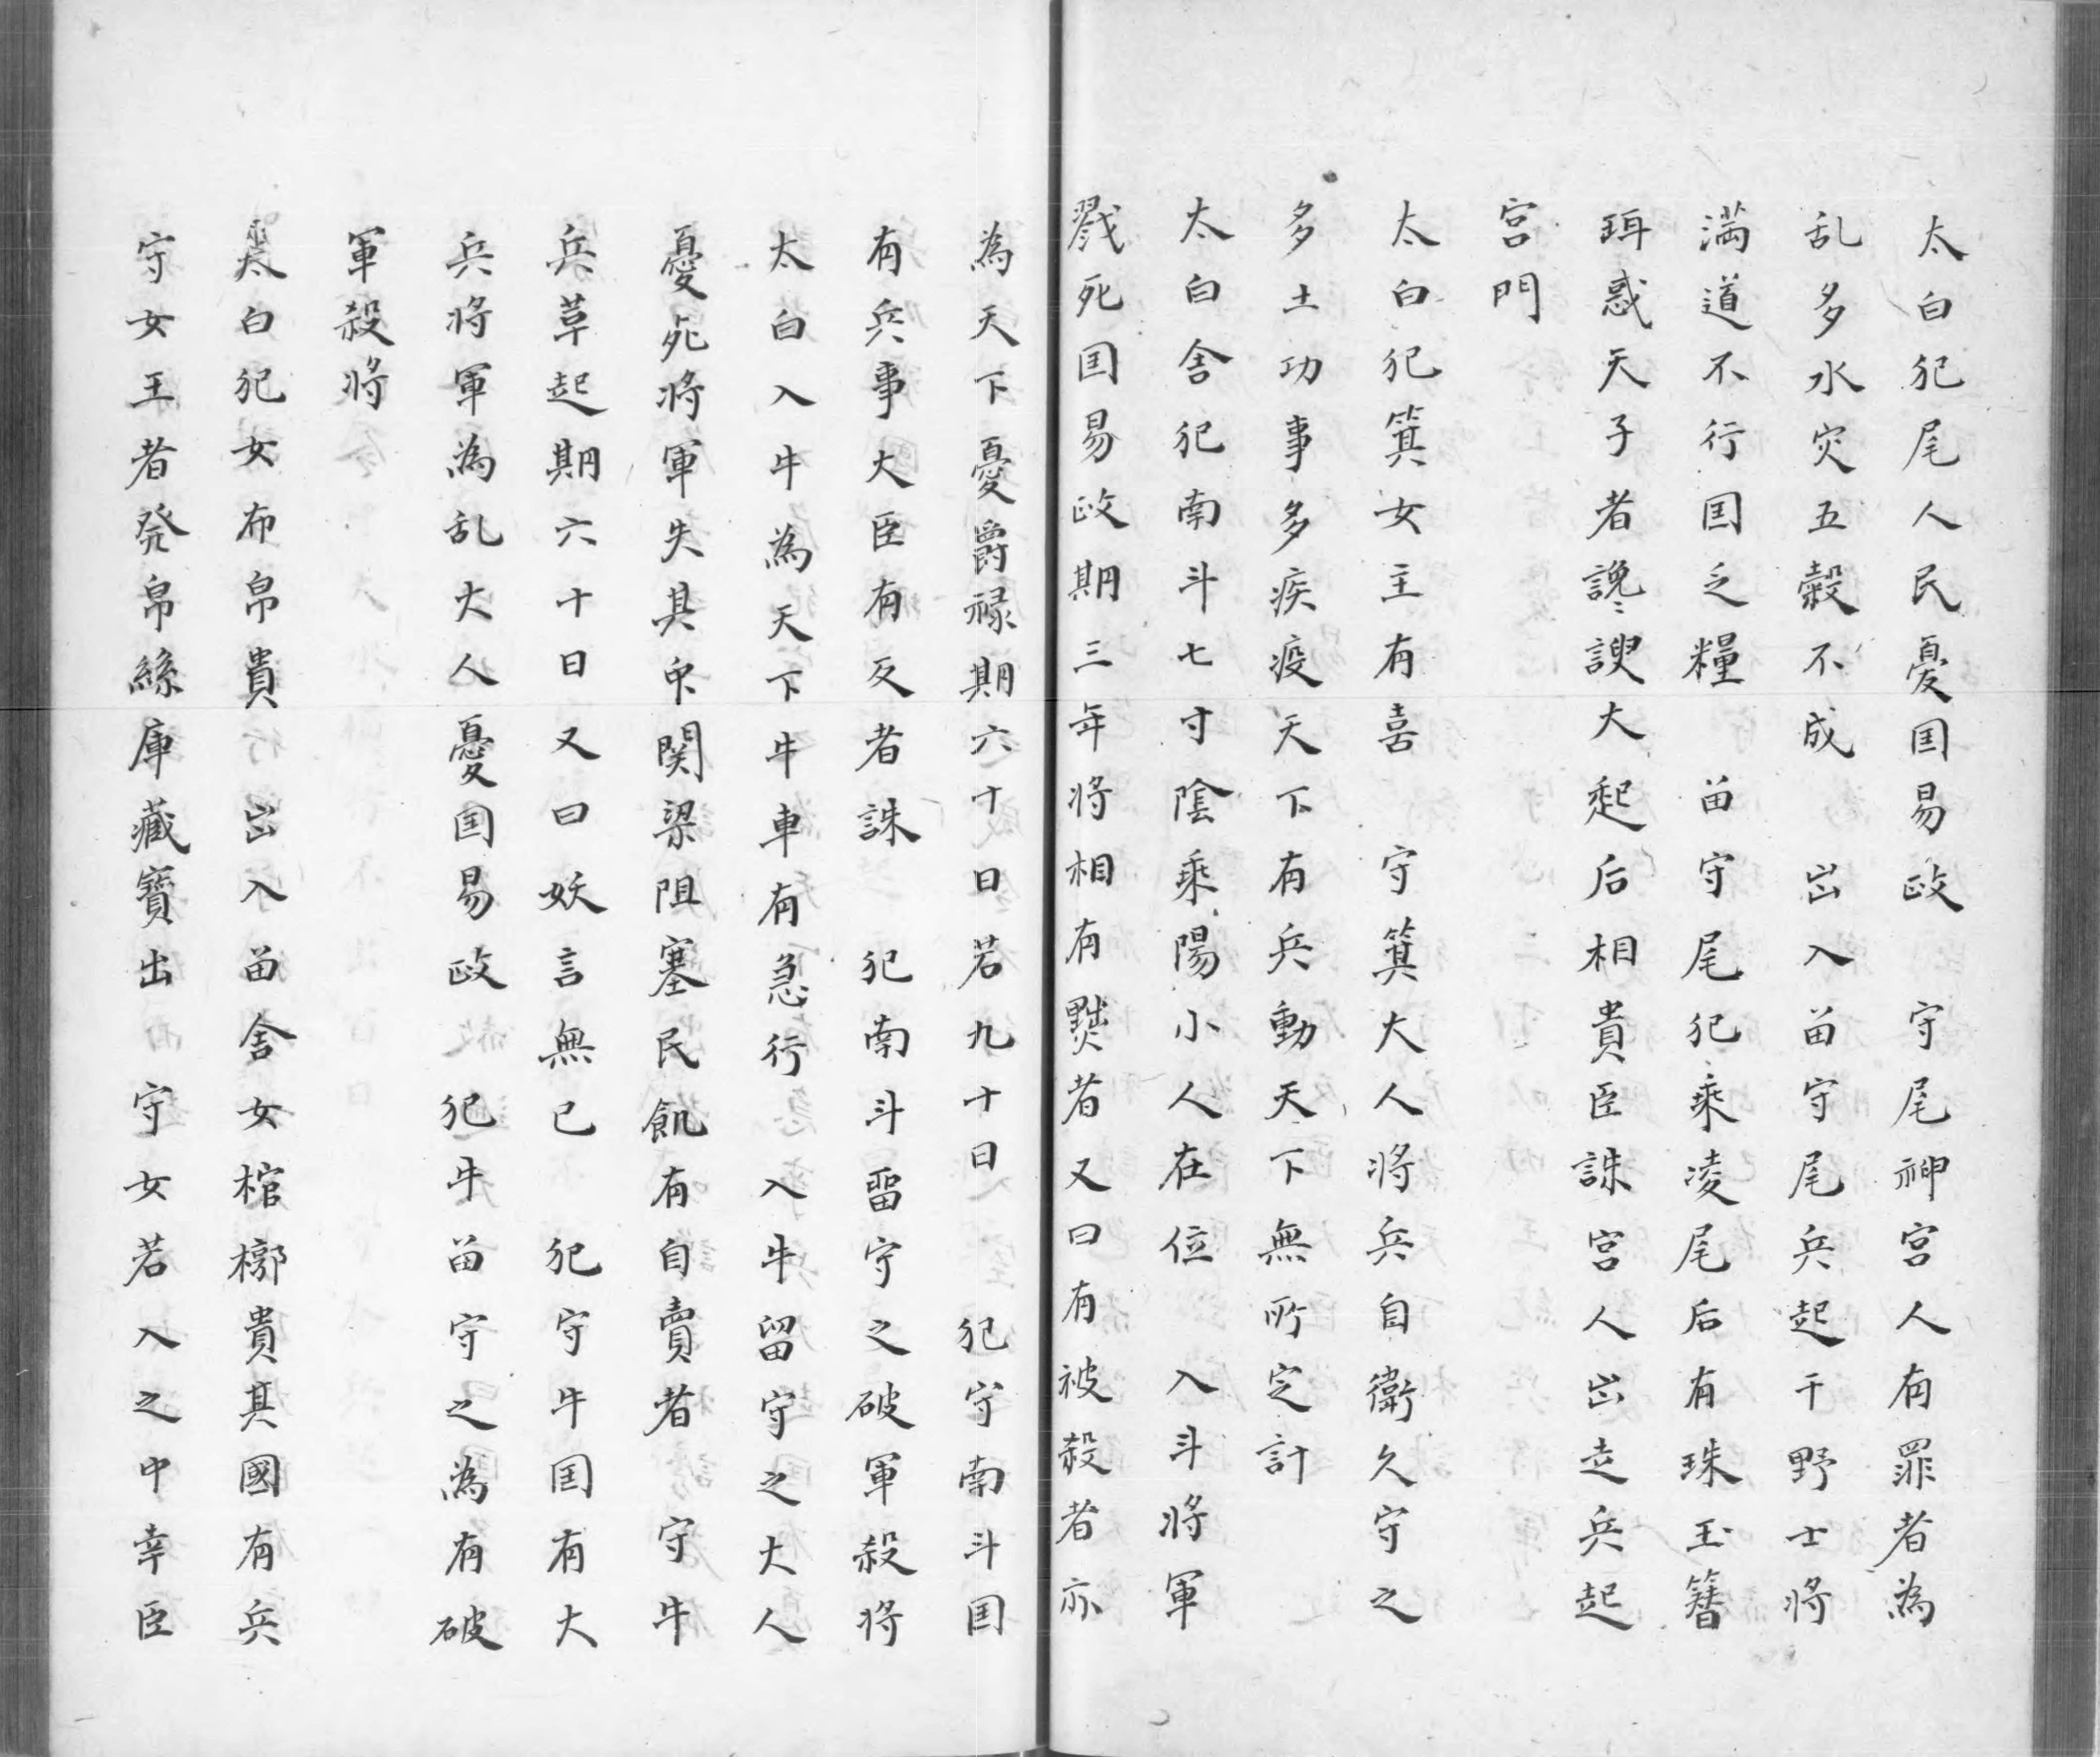 太白犯尾人民憂囯易政　守尾神宮人有罪者為
乱多水灾五穀不成　出入留守尾兵起干野士将
満道不行囯乏糧　留守尾犯乗凌尾后有珠玉簪
珥惑天子者讒〻諛大起后相貴臣誅宮人出走兵起
宮門
太白犯箕女主有喜　守箕大人将兵自衛久守之
多土功事多疾疫天下有兵動天下無所定計
太白舎犯南斗七寸陰乗陽小人在位　入斗将軍
戮死囯易政期三年将相有黜者又曰有被殺者亦
為天下憂爵禄期六十日若九十日　犯守南斗囯
有兵事大臣有反者誅　犯南斗留守之破軍殺将
太白入牛為天下牛車有急行　入牛留守之大人
憂死将軍失其印関梁阻塞民飢有自賣者　守牛
兵草起期六十日又曰妖言無已　犯守牛囯有大
兵将軍為乱大人憂囯易政　犯牛留守之為有破
軍殺将
太白犯女布帛貴　出入留舎女棺槨貴其國有兵
守女王者発帛絲庫藏寶出　守女若入之中幸臣